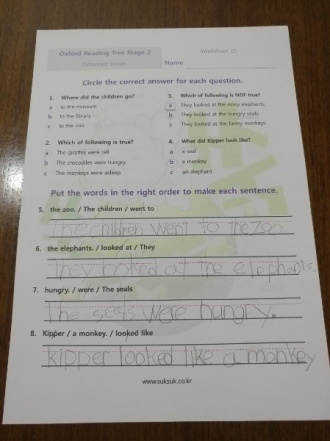 Oxford Reading Tree Stage 2
Worksheet (2)
Name
Circle the correct answer for each question.
1. Where did the children go?
a to the museum
b to the library
c to the zoo
2. Which of following is true?
a The giraffes were tall
b The crocodiles were hungry
c The monkeys were asleep
3. Which of following is NOT true?
a They looked at the noisy elephants.
b They looked at the hungry seals
c They looked at the funny monkeys
4. What did Kipper look like?
a a seal
b a monkey
c an elephant
Put the words in the right order to make each sentence.
5. the zoo. / The children / went to
The children went to the zoo
6. the elephants. / looked at / They
They looked at the elephants.
7. hungry. / were / The seals
The seals were hungry.
8. Kipper / a monkey. / looked like
Kipper looked like a monkey
www.suksuk.co.kr